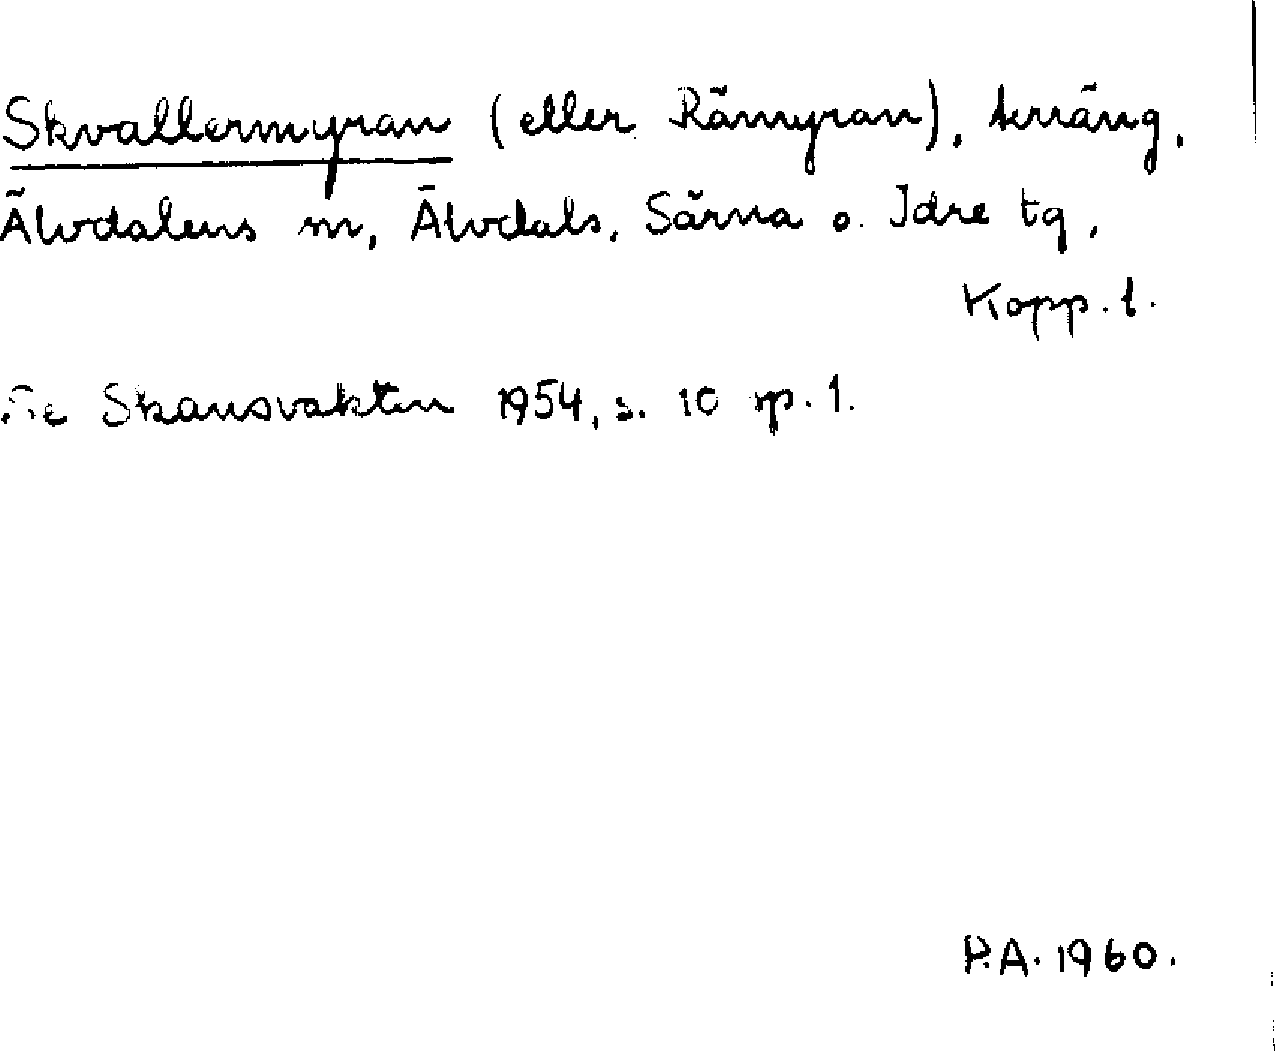 Skvallermyran (eller Rämyran), terräng,
Älvdalens sn, Älvdals, Särna o. Idre tg,
Kopp. l.
Se Skansvakten 1954, s. 10 sp. 1.
P.A. 1960.